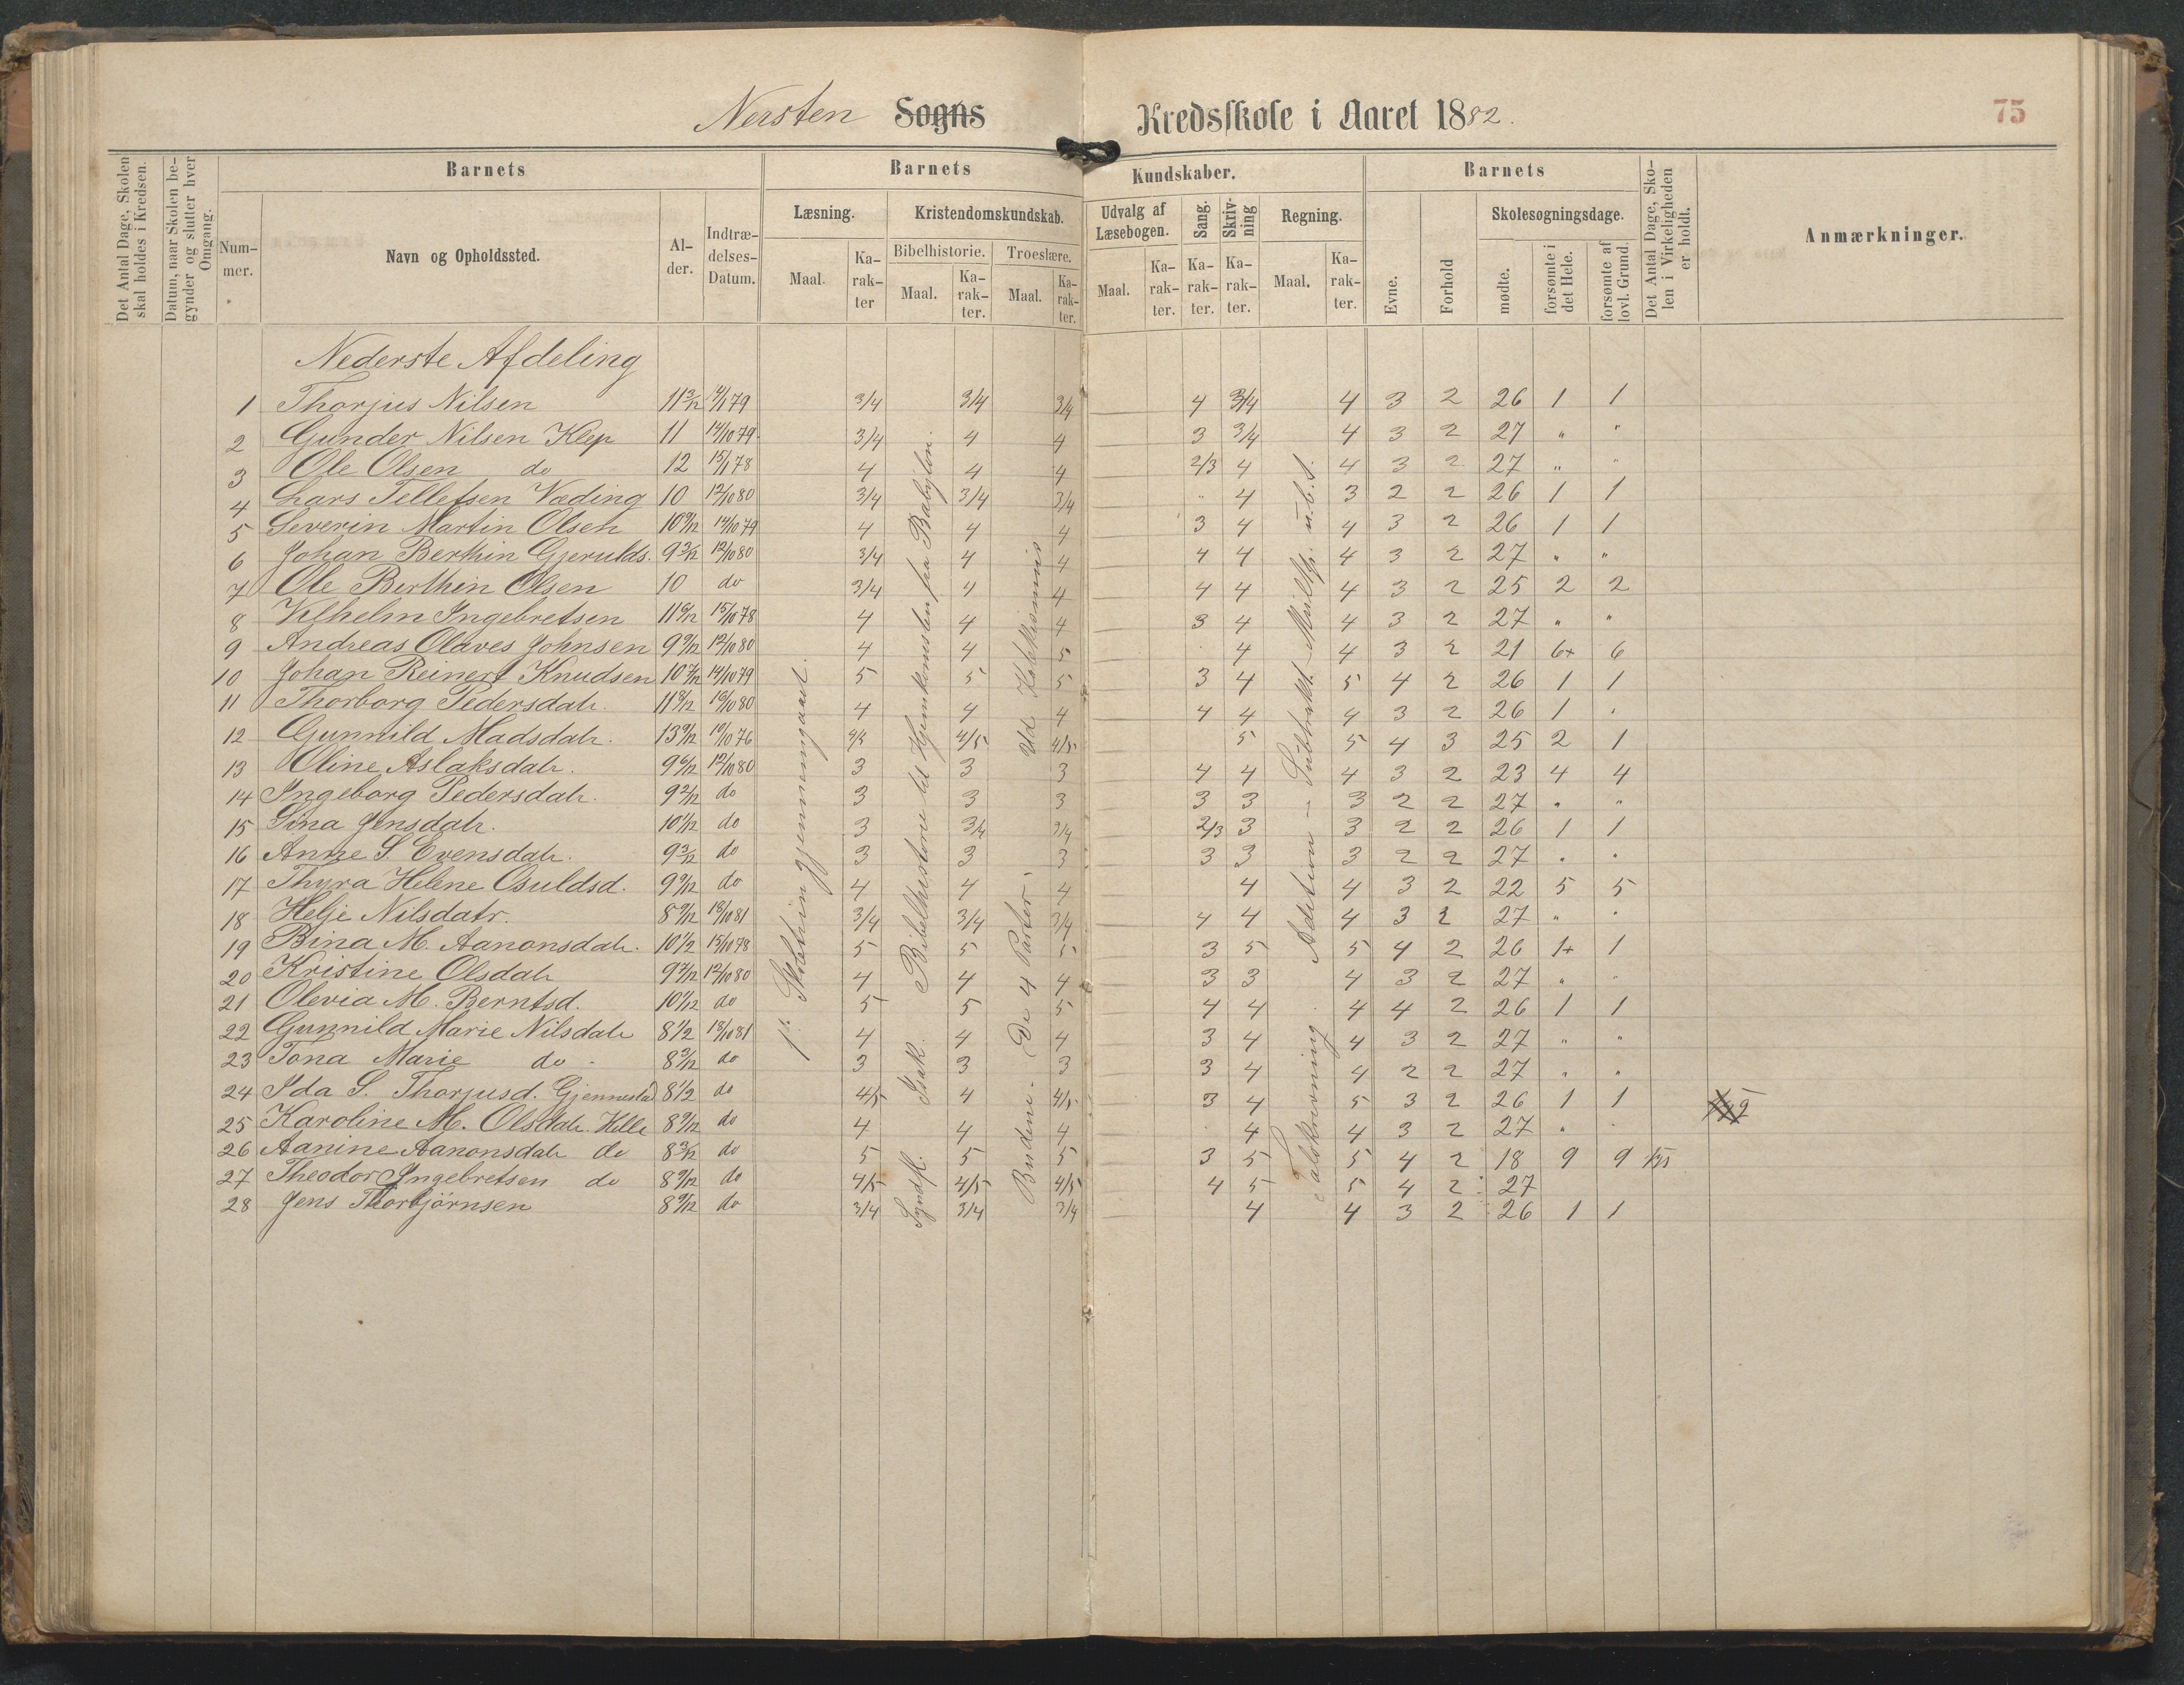 Nersten Sogns Kredsskole i Aaret 1882.
75
Det Antal Dage, Skolen skal holdes i Kredsen.
Datum, naar Skolen begynder og slutter hver Omgang.
Barnets
Barnets
Kundskaber.
Barnets
Det Antal Dage, Skolen i Virkeligheden er holdt.
Anmærkninger.
Nummer.
Navn og Opholdssted.
Alder.
Indtrædelses-Datum.
Læsning.
Kristendomskundskab.
Udvalg af Læsebogen.
Sang.
Skrivning
Regning.
Evne.
Forhold
Skolesøgningsdage.
Bibelhistorie.
Troeslære.
Maal.
Karakter
Maal.
Karakter.
Maal.
Karakter.
Maal.
Karakter.
Karakter.
Karakter.
Maal.
Karakter.
mødte.
forsømte i det Hele.
forsømte af lovl. Grund.
Nederste Afdeling
1 Thorjus Nilsen 11 3/12 79 3/4 3/4 3/4 4 3/4 4 3 2 26 1 1
2 Gunder Nilsen Klep 11 14/10 79 3/4 4 4 3 3/4 4 3 2 27 " "
3 Ole Olsen do 12 15/1 78 4 4 4 2/3 4 4 3 2 27 " "
4 Lars Tellefsen Væding 10 12/10 80 3/4 3/4 3/4 " 4 3 2 2 26 1 1
5 Severin Martin Olsen 10 9/12 14/10 79 4 4 4 3 4 4 3 2 26 1 1
6 Johan Berthin Gjerulds. 9 3/12 12/10 80 3/4 4 4 4 4 4 3 2 27 " "
7 Ole Berthin Olsen 10 do 3/4 4 4 4 4 4 3 2 25 2 2
8 Vilhelm Ingebretsen 11 6/12 15/10 78 4 4 4 3 4 4 3 2 27 " "
9 Andreas Olaves Johnsen 9 9/12 12/10 80 4 4 5 4 4 3 2 21 6+ 6
10 Johan Reinert Knudsen 10 7/12 14/10 79 5 5 5 3 4 5 4 2 26 1 1
11 Thorborg Pedersdatr. 11 8/12 80 4 4 4 4 4 4 3 2 26 1 "
12 Gunnild Madsdatr. 13 9/12 76 4/5 4/5 5 5 4 3 25 2 1
13 Oline Aslaksdatr. 9 6/12 12/10 80 3 3 3 4 4 4 3 2 23 4 4
14 Ingeborg Pedersdatr. 9 2/12 do 3 3 3 3 3 3 2 2 27 " "
15 Sina Jensdatr. 10 1/12 do 3 3/4 3/4 2/3 3 3 2 2 26 1 1
16 Anne S. Evensdatr. 9 3/12 do 3 3 3 3 3 3 2 2 27 " "
17 Thyra Helene Osuldsd. 9 9/12 do 4 4 4 4 4 3 2 22 5 5
18 Helje Nilsdatr. 8 9/12 18/10 81 3/4 3/4 3/4 4 4 4 3 2 27 " "
19 Bina M. Aanonsdatr. 10 1/2 15/10 78 5 5 5 3 5 5 4 2 26 1+ 1
20 Kristine Olsdatr 9 7/12 12/10 80 4 4 4 3 3 4 3 2 27 " "
21 Olevia M. Berntsd. 10 1/12 do 5 5 5 4 4 4 4 2 26 1 1
22 Gunnild Marie Nilsdatr 8 1/2 18/10 81 4 4 4 3 4 4 3 2 27 " "
23 Tona Marie do - 8 3/12 do 3 3 3 3 4 4 2 2 27 " "
24 Ida S. Thorjusd. Gjennestad 8 1/2 do 4/5 4 4/5 3 4 5 3 2 26 1 1
25 Karoline M. Olsdatr. Helle 8 9/12 do 4 4 4 4 4 3 2 27 " "
26 Aanine Aanonsdatr do 8 3/12 do 5 5 5 3 5 5 4 2 18 9 9
27 Theodor Ingebretsen do 8 9/12 do 4/5 4/5 4/5 4 5 5 4 2 27
28 Jens Thorbjörnsen 8 9/12 do 3/4 3/4 3/4 4 4 3 2 26 1 1
gjennemgaaet.
Syndfl. Isak Bibelhistorie til Hjemkomsten fra Babylon.
Budene. De 4 Parter. Ud Katekismus
Talskrivning. Adition - Subtrakt. Multip. u. b. t.